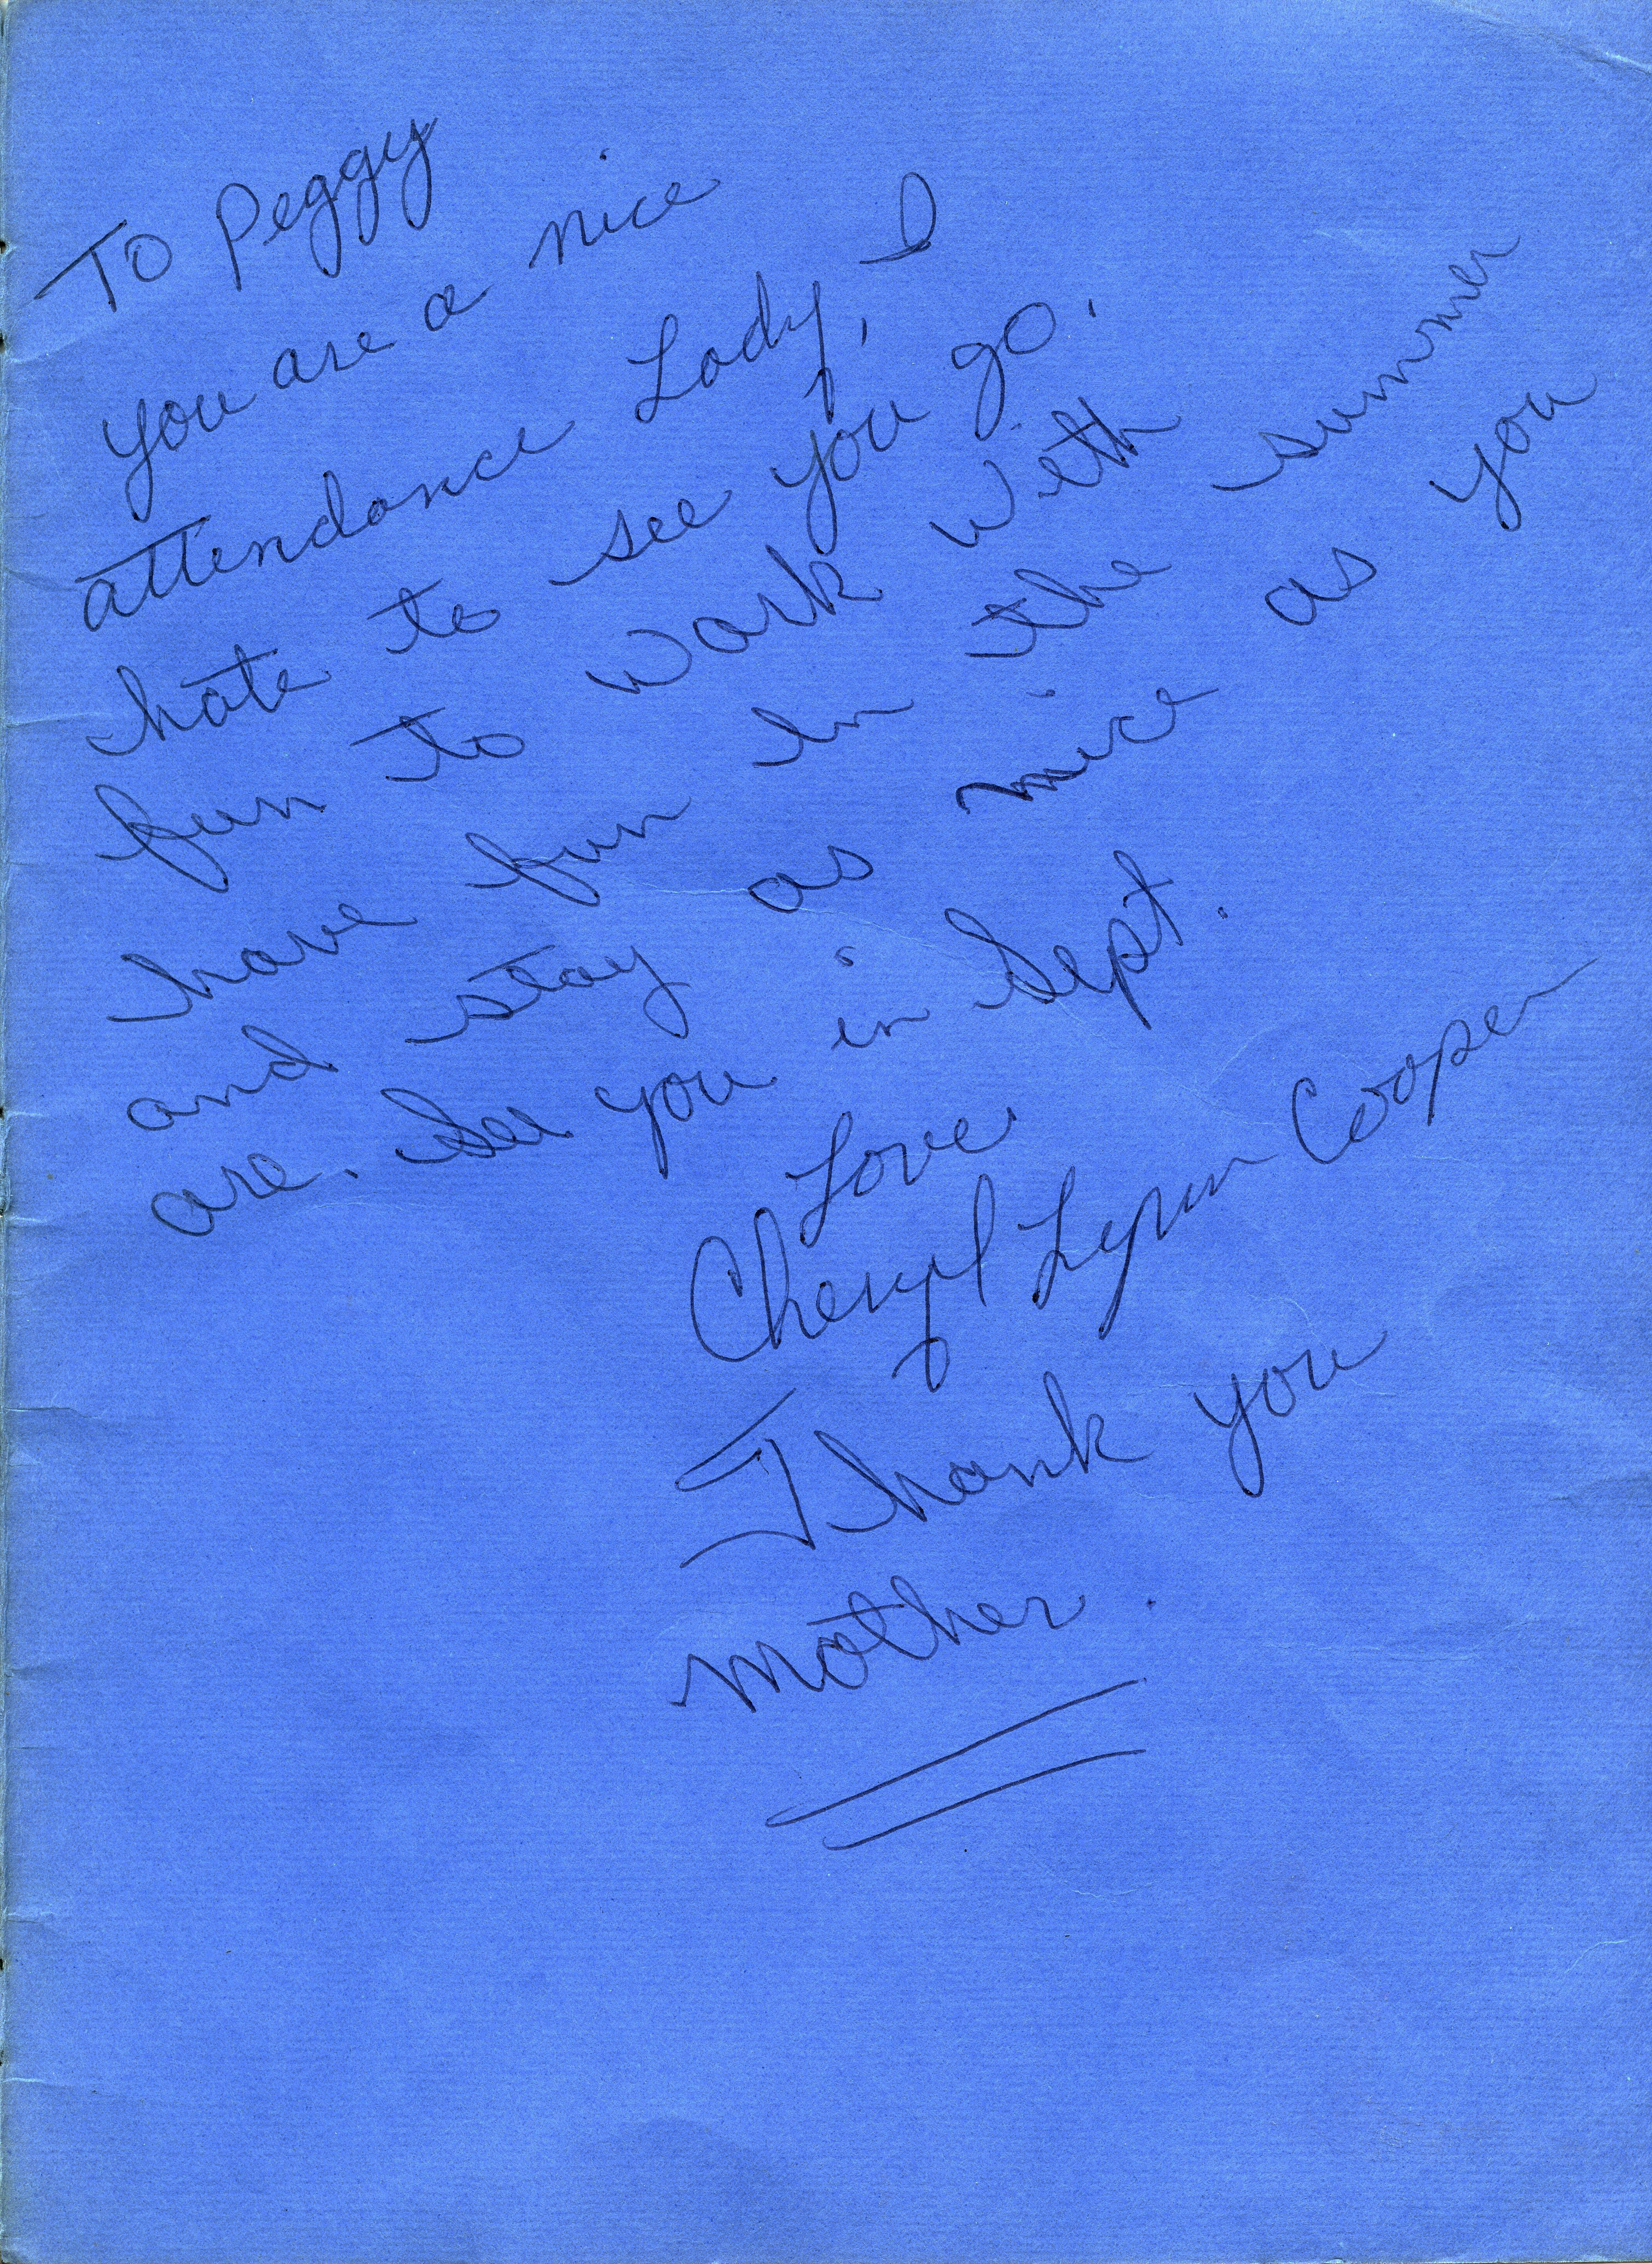 To Peggy
you are a nice
attendance Lady, I
hate to see you go.
fun to work with
have fun in the summer
and stay as nice as you
are. See you in Sept.
Love
Cheryl Lynn Cooper
Thank you
mother.